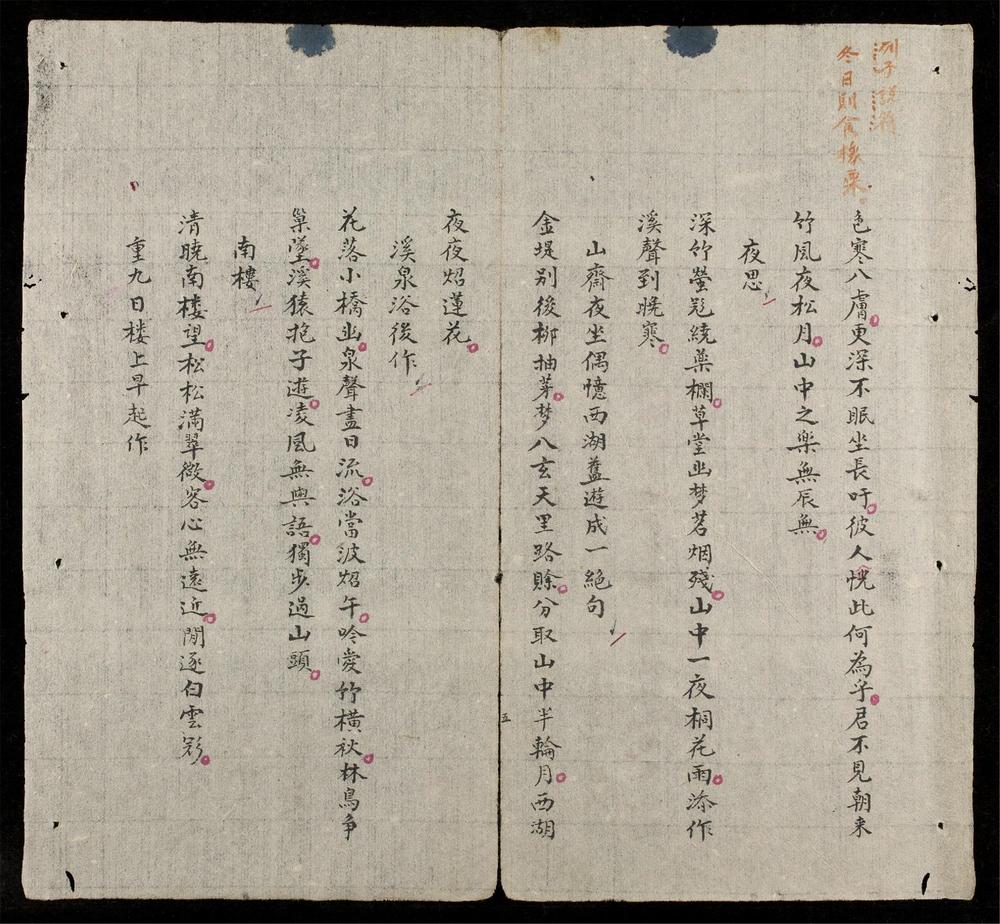 列子說符
冬日則食橡栗
色寒入膚更深不眠坐長吁彼人恍此何為乎君不見朝来
竹風夜松月山中之楽無辰無
夜思
深竹螢飛繞藥欄草堂幽梦茗烟殘山中一夜桐花雨添作
溪聲到晚寒
山齋夜坐偶憶西湖舊遊成一絕句
金堤别後柳抽芽梦入玄天里路賒分取山中半輪月西湖
五
夜夜炤蓮花
溪泉浴後作
花落小橋幽泉聲盡日流浴當波炤午吟愛竹橫秋林鳥争
巢墜溪猿抱子遊凌風無與語獨步過山頭
南樓
清曉南楼望松松滿翠微客心無遠近閒逐白雲
重九日楼上早起作